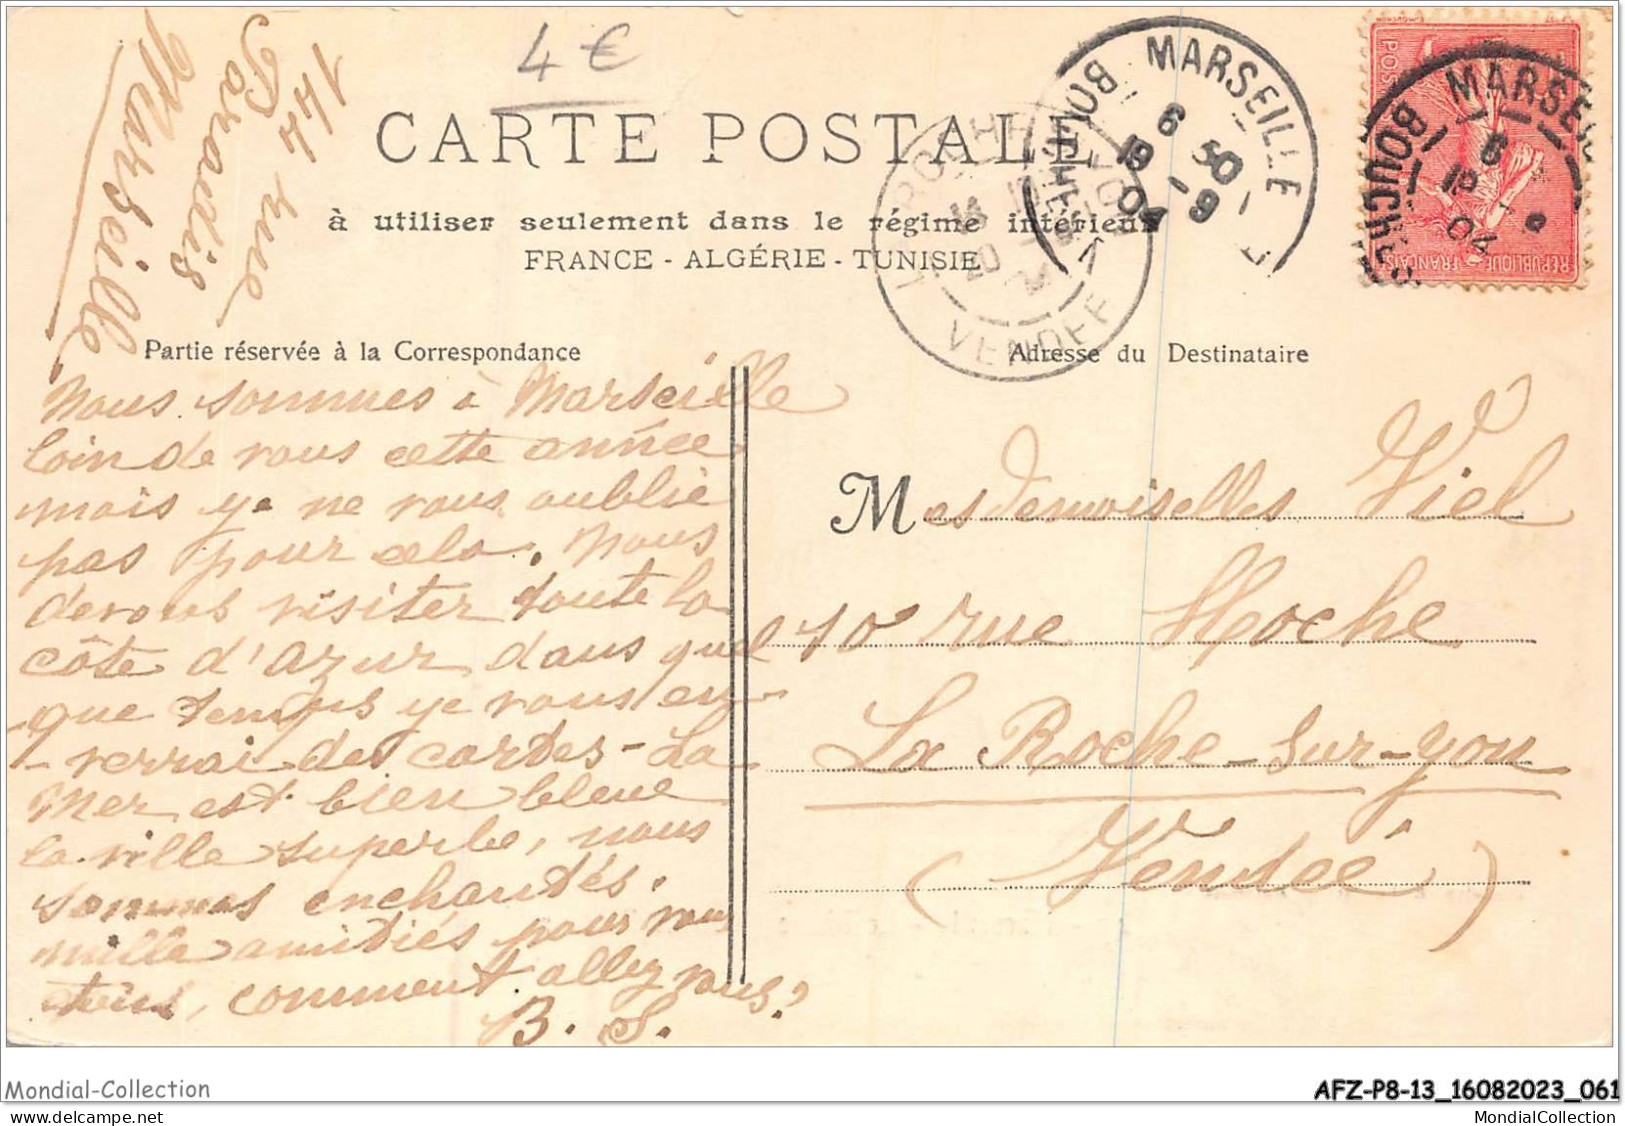 4 €
144 rue
Paradis
Marseille
CARTE POSTALE
à utiliser seulement dans le régime intérieur
FRANCE - ALGÉRIE - TUNISIE
MARSEILLE
6 50
19 - 9
04
BOUCHES
VENDEE
MARSEILLE
BOUCHES
04
RÉPUBLIQUE FRANÇAISE
Partie réservée à la Correspondance
Nous sommes à Marseille
loin de vous cette année
mais je ne vous oublie
pas pour cela. Nous
devons visiter toute la
côte d'azur, dans quel
que temps je vous en-
-verrai des cartes - La
Mer est bien bleue
la ville superbe, nous
sommes enchantés.
mille amitiés pour vous
comment allez vous?
B. S.
Adresse du Destinataire
Mesdemoiselles Viel
10 rue Hoche
La Roche-sur-yon
(Vendée)
Mondial-Collection
AFZ-P8-13_16082023_061
MondialCollection
MondialCollection